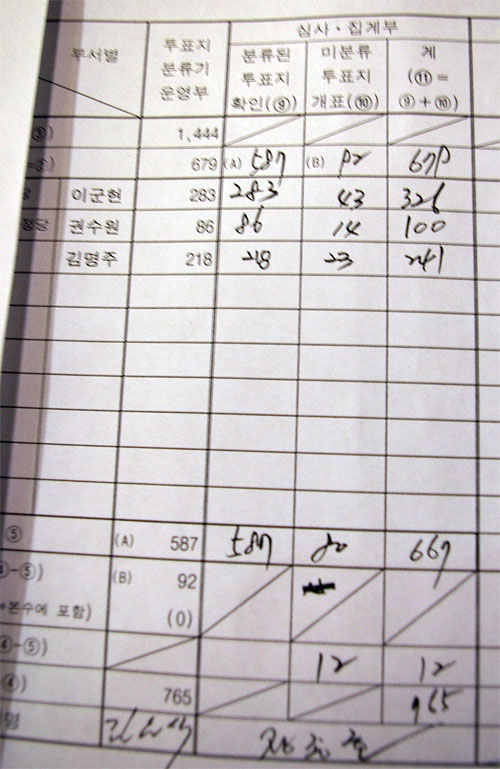 심사 · 집계부
부서별 투표지 분류기 운영부 분류된 투표지 확인(⑨) 미분류 투표지 개표(⑩) 계 (⑪= ⑨+⑩)
③) 1,444
679 (A) 587 (B) 92 679
이군현 283 283 43 326
정당 권수원 86 86 14 100
김명주 218 218 23 241
⑤ (A) 587 587 80 667
④-⑤) (B) 92
수에 포함) (0)
④-⑤) 12 12
④) 765 765